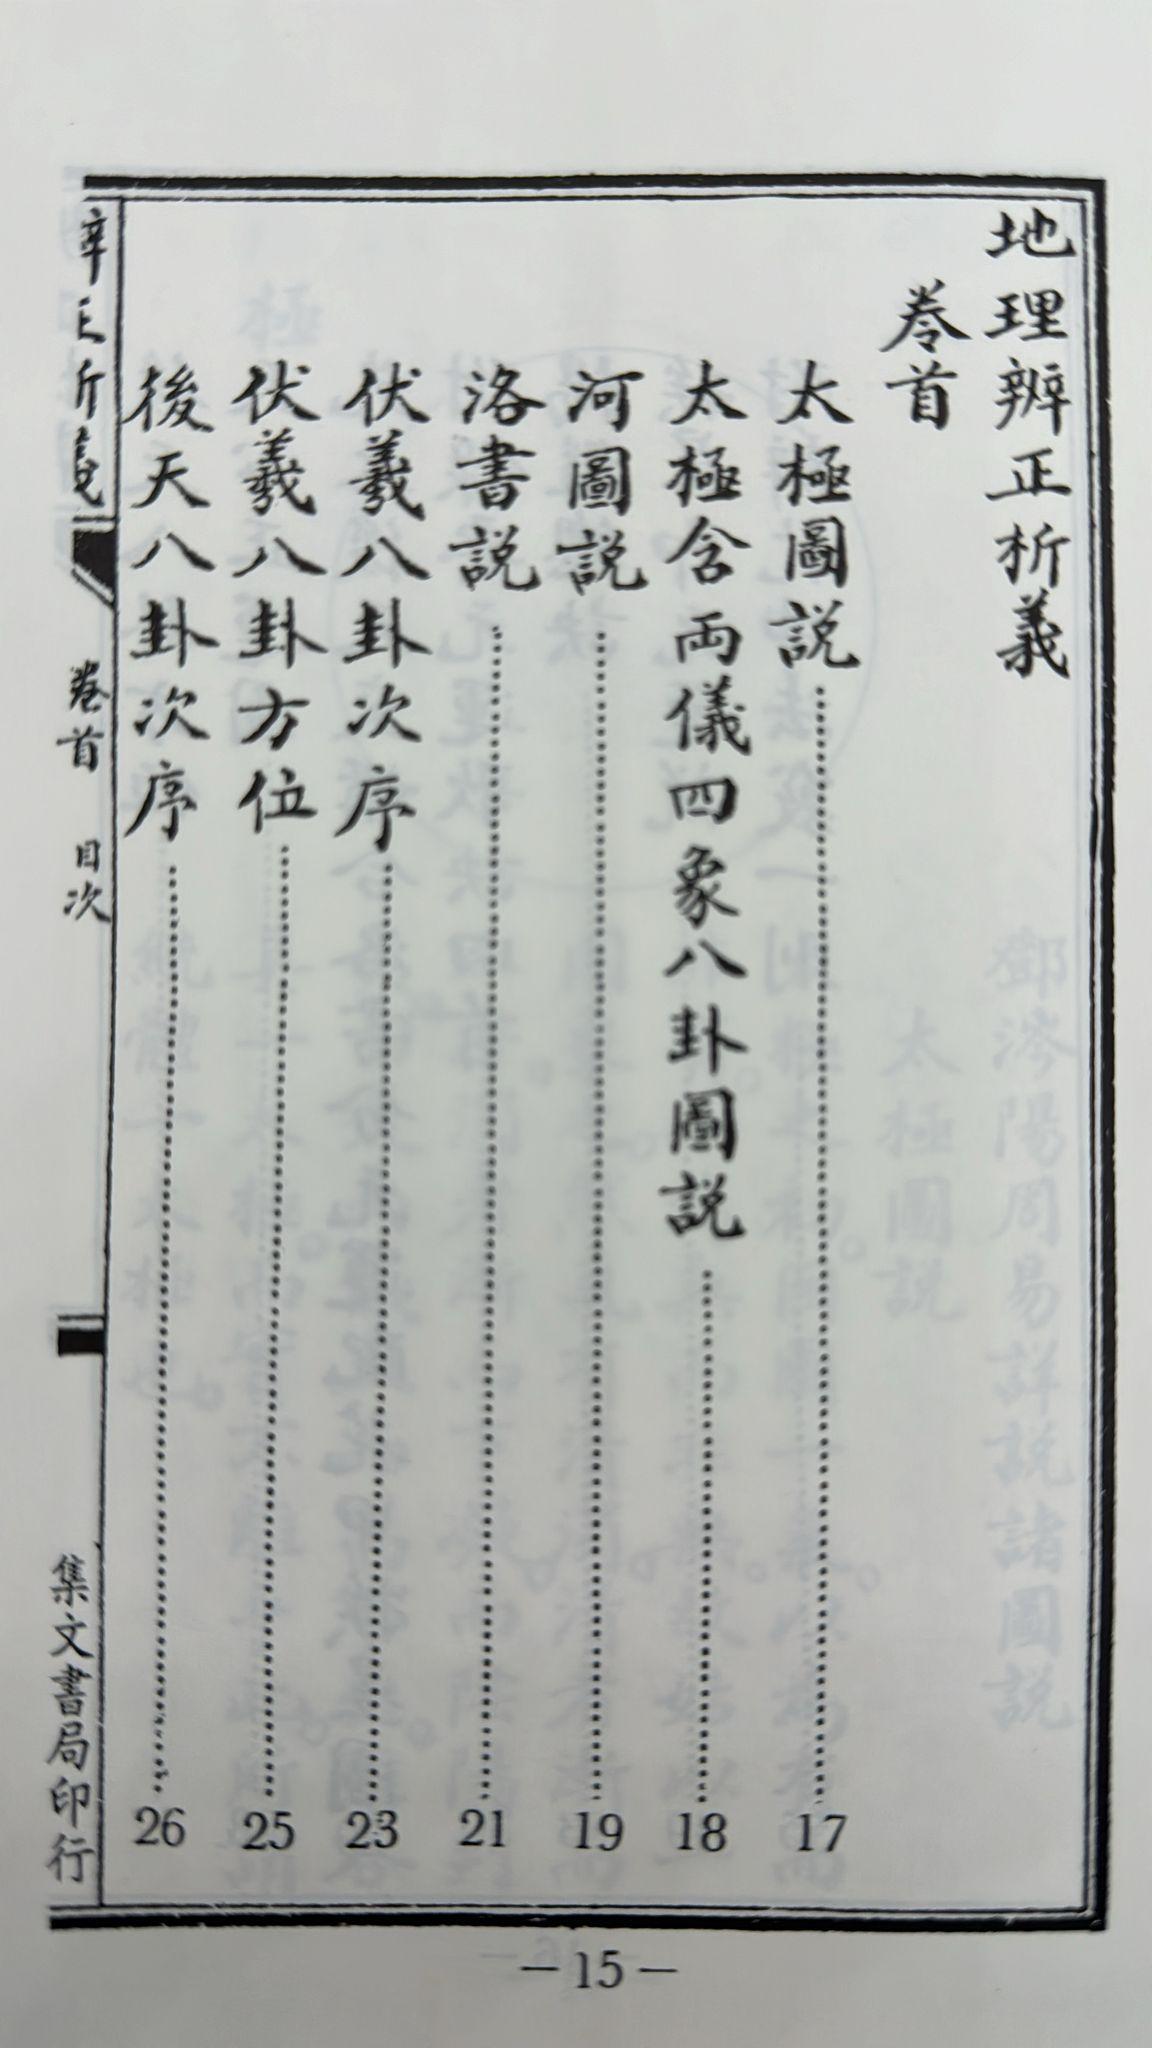 地理辨正析義
卷首
太極圖説 17
太極含兩儀四象八卦圖説 18
河圖説 19
洛書説 21
伏羲八卦次序 23
伏羲八卦方位 25
後天八卦次序 26
辨正析義 卷首 目次 集文書局印行
－15－